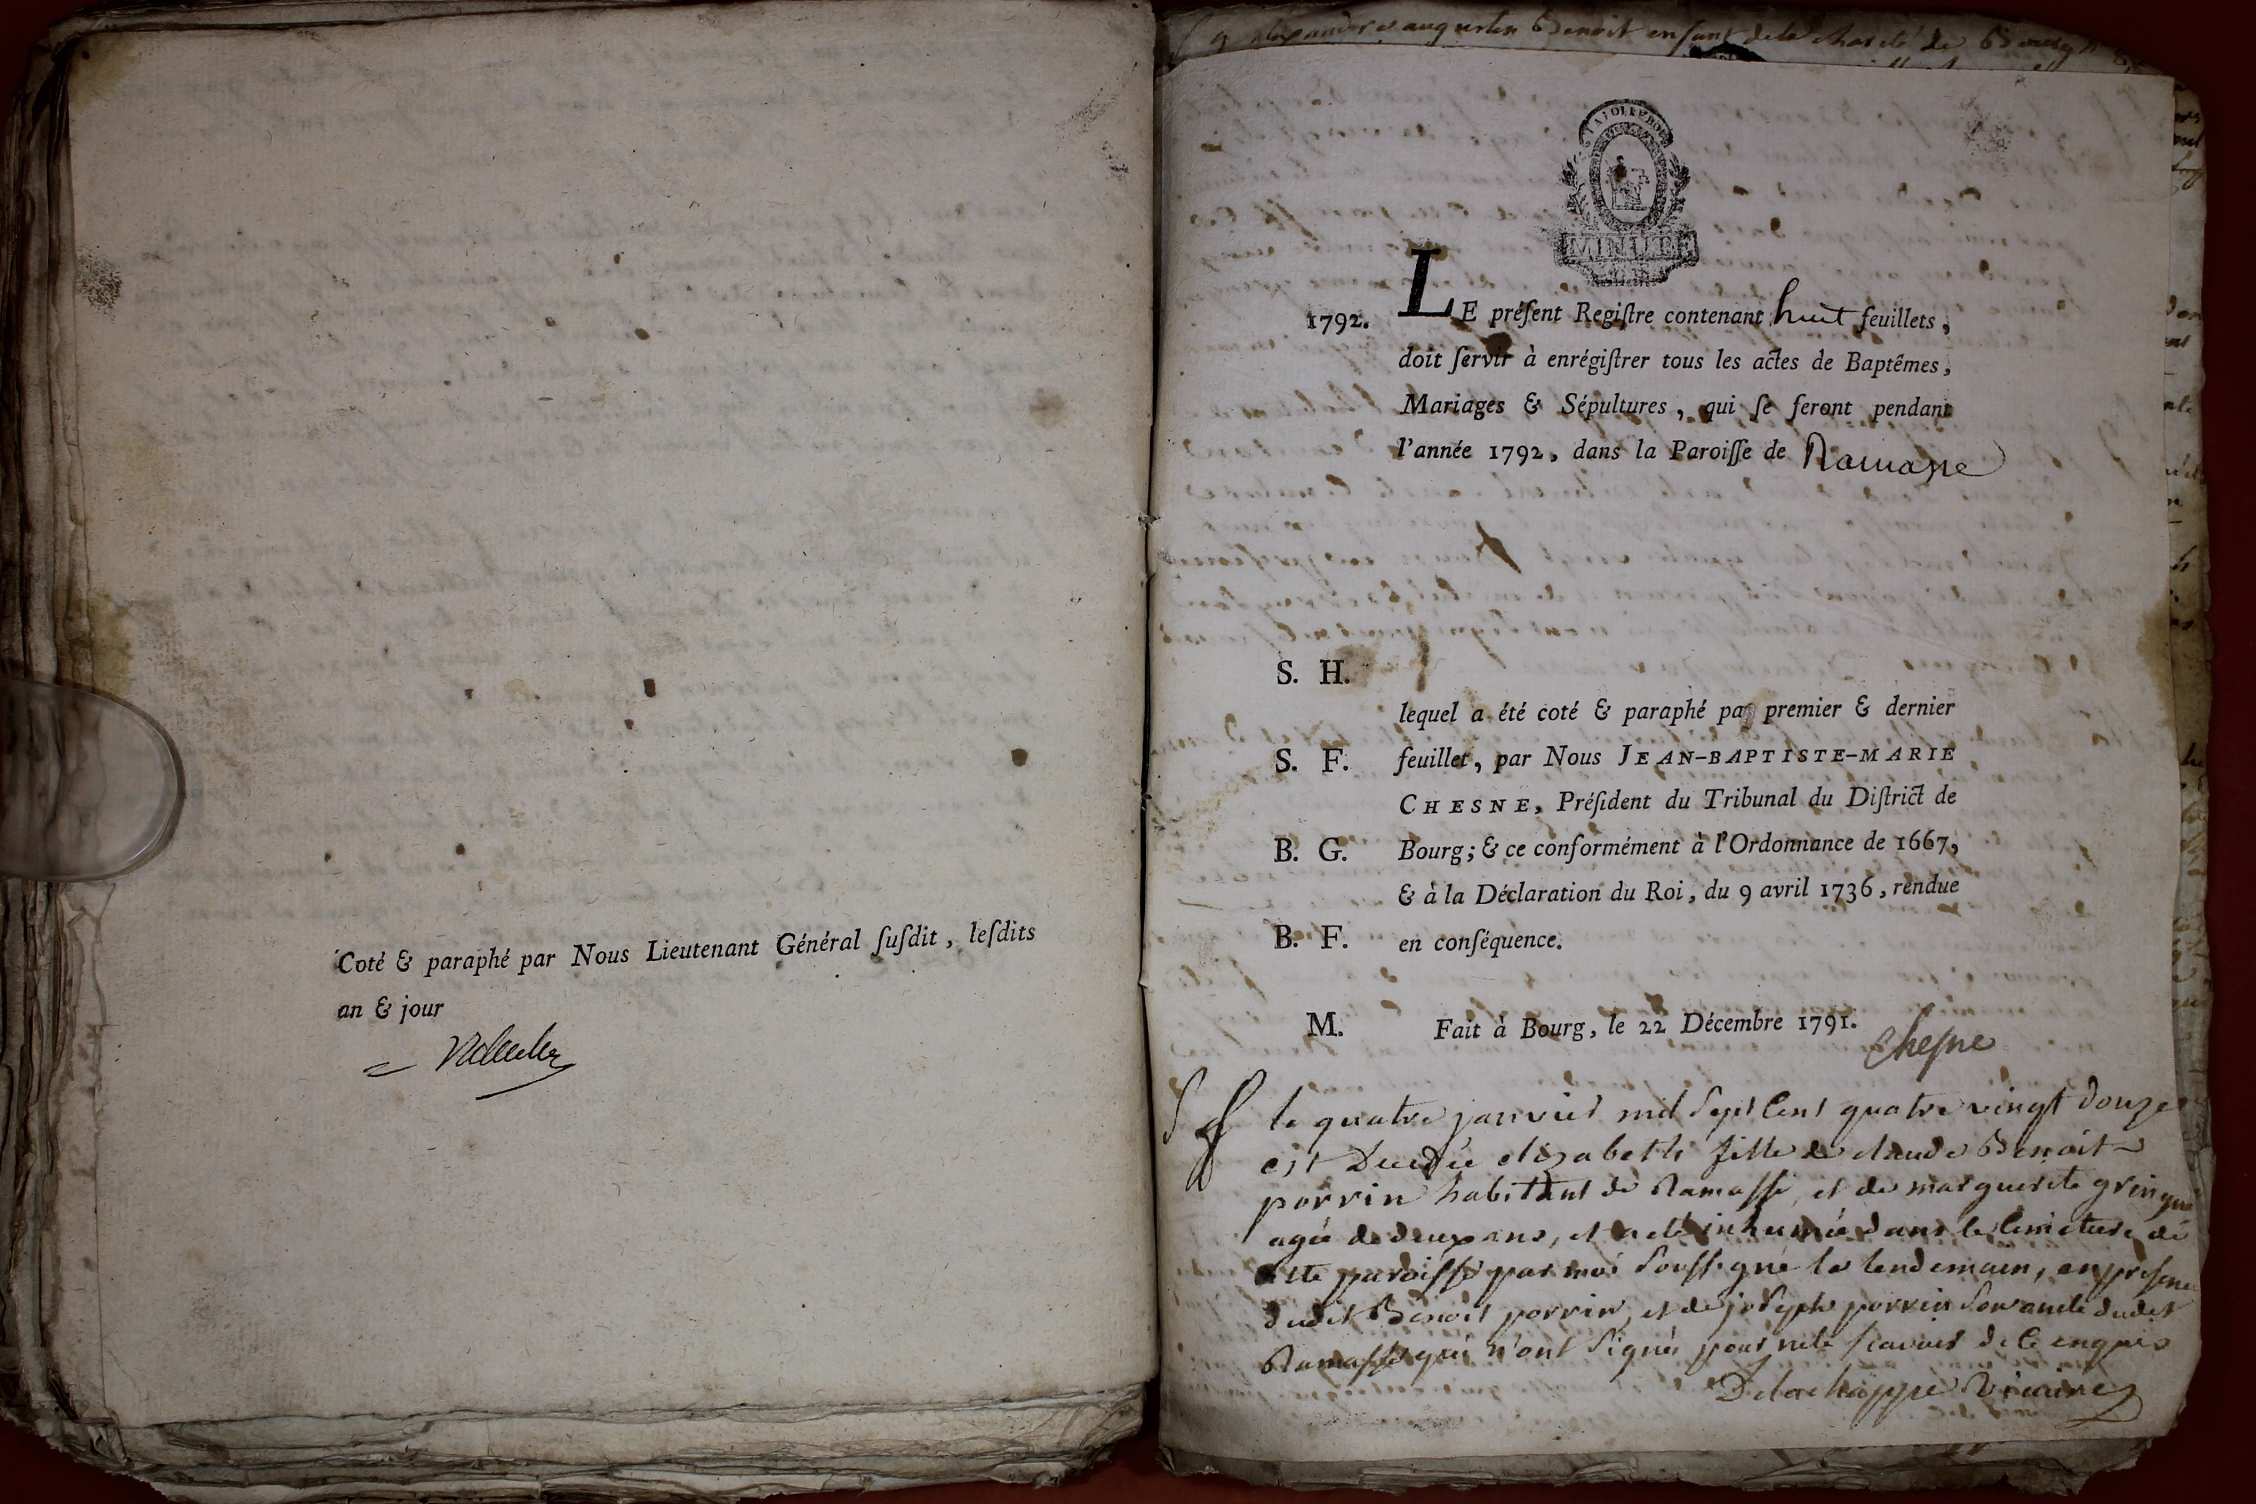 Coté & paraphé par Nous Lieutenant Général ſuſdit, leſdits
an & jour
augustin Benoit enfant de la charité de Bourg
MINUTE
1792.
LE préſent Regiſtre contenant huit feuillets,
doit ſervir à enrégiſtrer tous les actes de Baptêmes,
Mariages & Sépultures, qui ſe feront pendant
l'année 1792, dans la Paroiſſe de Ramasse
S. H.
lequel a été coté & paraphé par premier & dernier
S. F. feuillet, par Nous JEAN-BAPTISTE-MARIE
CHESNE, Préſident du Tribunal du Diſtrict de
B. G. Bourg; & ce conformément à l'Ordonnance de 1667,
& à la Déclaration du Roi, du 9 avril 1736, rendue
B. F. en conſéquence.
M. Fait à Bourg, le 22 Décembre 1791.
Chesne
S f le quatre janvier mil sept cent quatre vingt douze
est Decedée elizabeth fille de claude Benoit
porrin habitant de Ramasse, et de marguerite gringue
agée de deux ans, et a eté inhumée dans le Cimetiere de
cette paroisse par moi soussigné le lendemain, en presence
dudit Benoit porrin, et de joseph porrin son oncle dudit
Ramasse qui n'ont signés pour ne le scavoir de ce enquis
Delachappe vicaire